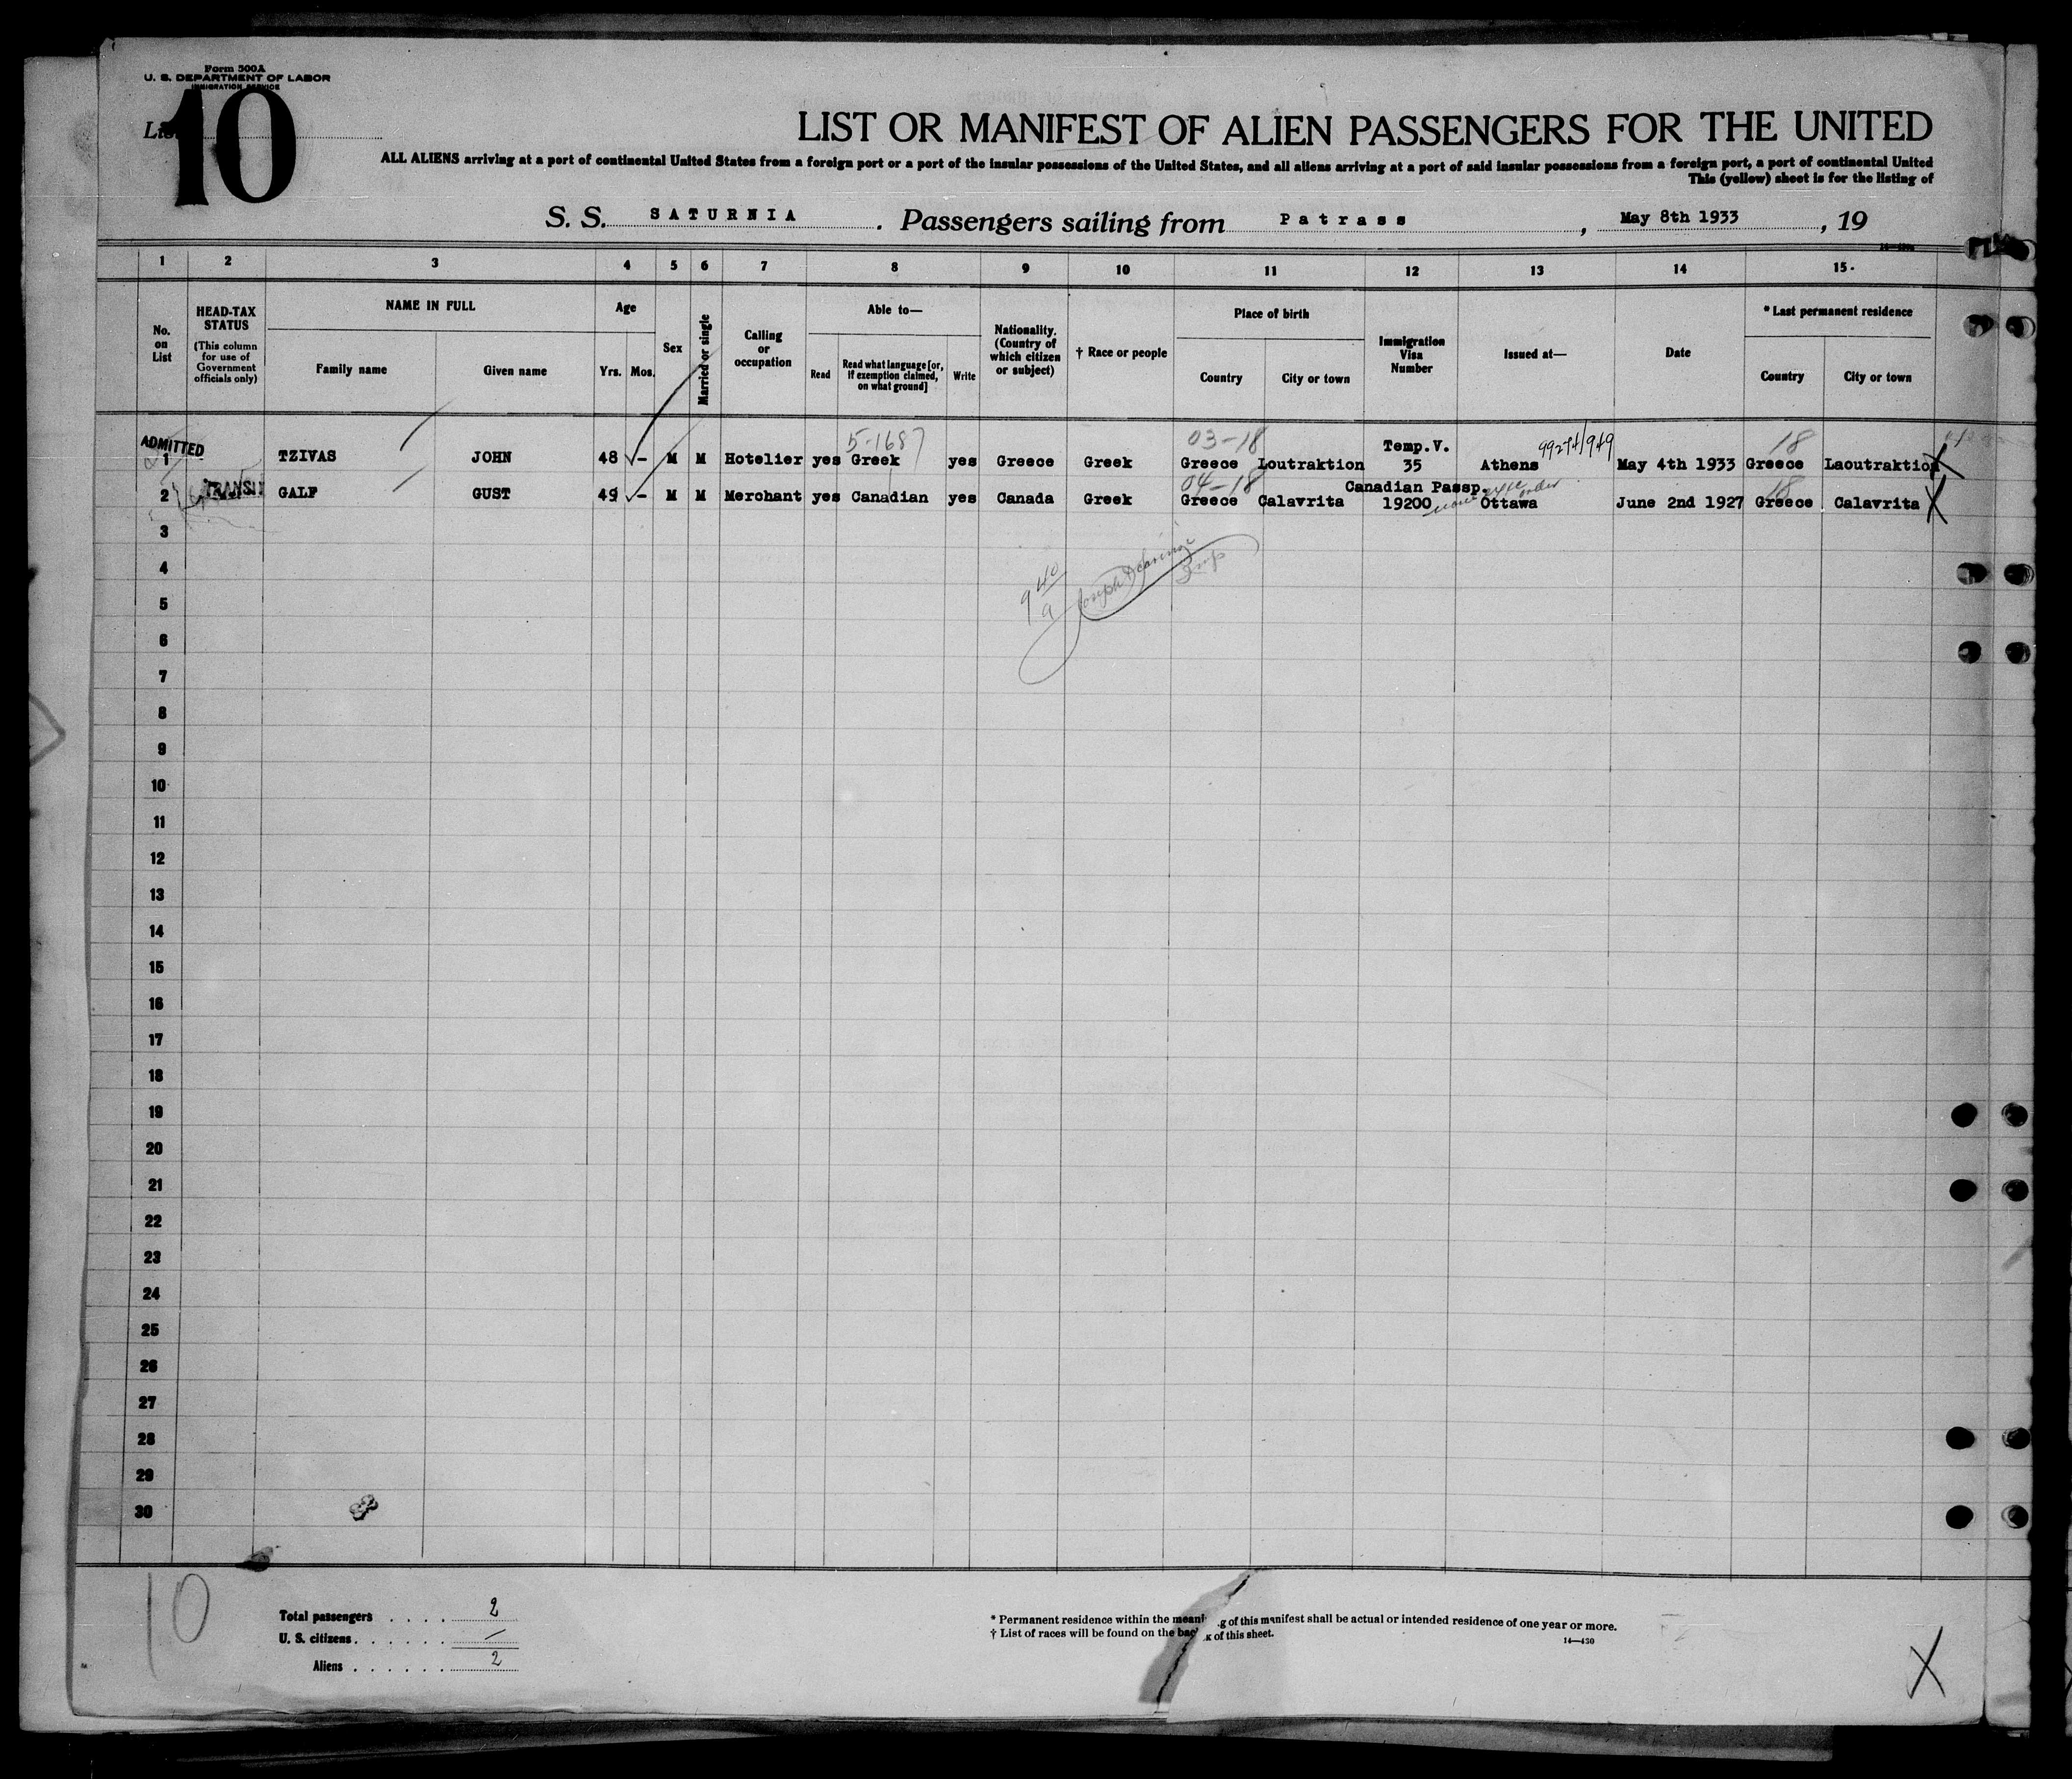 Form 500A
U. S. DEPARTMENT OF LABOR
IMMIGRATION SERVICE
List 10
LIST OR MANIFEST OF ALIEN PASSENGERS FOR THE UNITED
ALL ALIENS arriving at a port of continental United States from a foreign port or a port of the insular possessions of the United States, and all aliens arriving at a port of said insular possessions from a foreign port, a port of continental United
This (yellow) sheet is for the listing of
S. S. SATURNIA . Passengers sailing from Patrass , May 8th 1933 , 19
1 2 3 4 5 6 7 8 9 10 11 12 13 14 15
No. on List
HEAD-TAX STATUS
(This column for use of Government officials only)
NAME IN FULL
Family name Given name
Age
Yrs. Mos.
Sex
Married or single
Calling or occupation
Able to—
Read
Read what language [or, if exemption claimed, on what ground]
Write
Nationality. (Country of which citizen or subject)
† Race or people
Place of birth
Country City or town
Immigration Visa Number
Issued at—
Date
* Last permanent residence
Country City or town
5-1687 03-18 99274/949 18
ADMITTED
Temp.V.
1 TZIVAS JOHN 48 - M M Hotelier yes Greek yes Greece Greek Greece Loutraktion 35 Athens May 4th 1933 Greece Laoutraktion X
04-18 18
TRANSIT
Canadian Passp.
2 GALF GUST 49 - M M Merchant yes Canadian yes Canada Greek Greece Calavrita 19200 Ottawa June 2nd 1927 Greece Calavrita X
3
4
9 40 a
5
6
7
8
9
10
11
12
13
14
15
16
17
18
19
20
21
22
23
24
25
26
27
28
29
30
10
Total passengers . . . . 2
U. S. citizens . . . . . . —
Aliens . . . . . . 2
* Permanent residence within the meaning of this manifest shall be actual or intended residence of one year or more.
† List of races will be found on the back of this sheet.
14—430
X